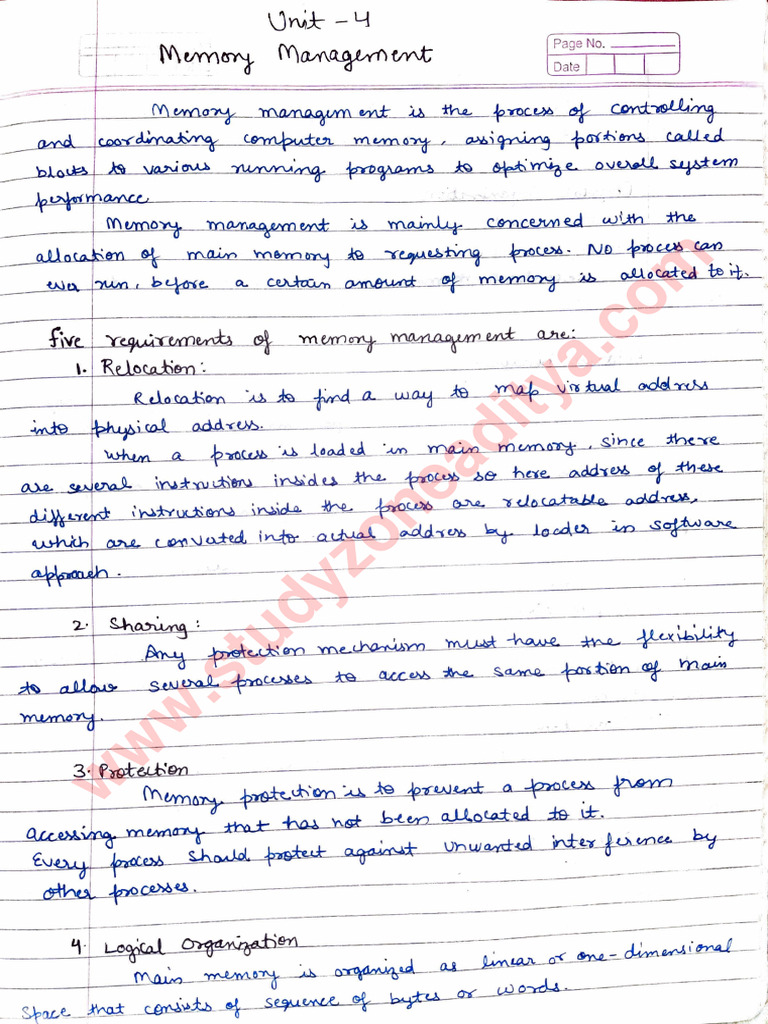 Unit - 4
Memory Management
Page No.
Date
Memory management is the process of controlling
and coordinating computer memory, assigning portions called
blocks to various running programs to optimize overall system
performance
Memory management is mainly concerned with the
allocation of main momory to requesting process. No process can
ever run, before a certain amount of memory is allocated to it.
five requirements of memory management are:
1. Relocation:
Relocation is to find a way to map virtual address
into physical address.
when a process is loaded in main memory, since there
are several instructions insides the process so here address of these
different instructions inside the process are relocatable address,
which are convated into actual address by loader in software
approach.
2. Sharing:
Any protection mechanism must have the flexibility
to allow several processes to access the same portion of main
memory.
3. Protection
Memory protection is to prevent a process from
accessing memory that has not been allocated to it.
Every process should protect against unwanted interference by
other processes.
4. Logical Organization
Main memory is organized as linear or one-dimensional
space that consists of sequence of bytes or words.
www.studyzoneaditya.com